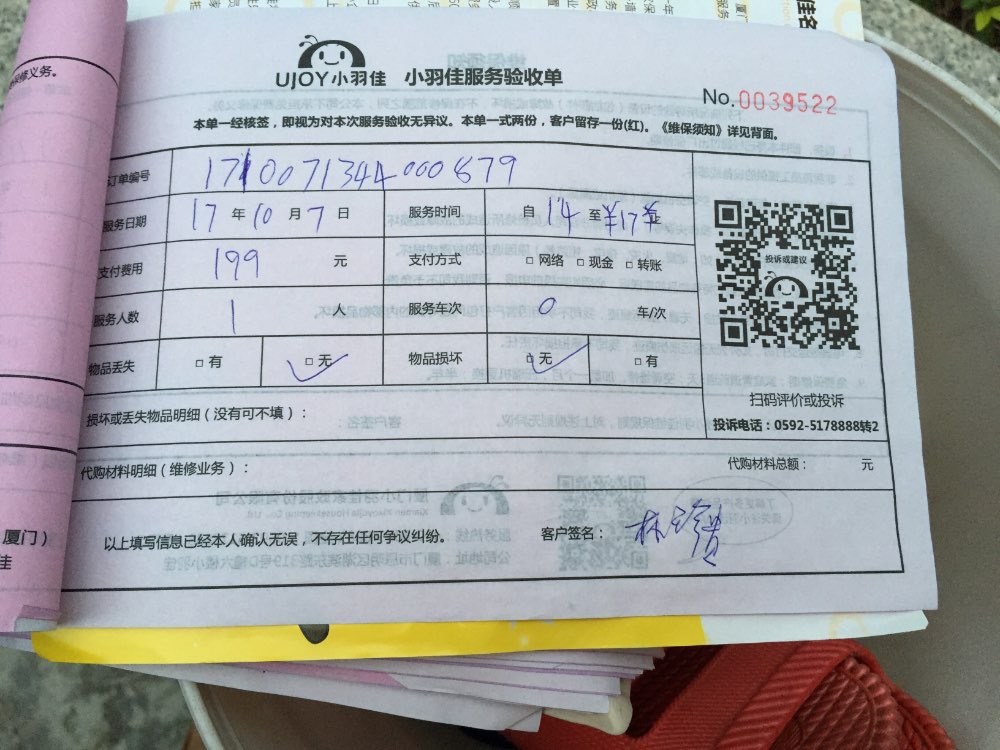 修义务。
UJOY小羽佳 小羽佳服务验收单
No.0039522
本单一经核签，即视为对本次服务验收无异议。本单一式两份，客户留存一份(红)。《维保须知》详见背面。
订单编号 1710071344000879
服务日期 17 年 10 月 7 日 服务时间 自 14 至 17 止
支付费用 199 元 支付方式 □ 网络 □ 现金 □ 转账
投诉或建议
服务人数 1 人 服务车次 0 车/次
物品丢失 □ 有 □ 无 ✓ 物品损坏 □ 无 ✓ □ 有
扫码评价或投诉
损坏或丢失物品明细（没有可不填）：
投诉电话：0592-5178888转2
代购材料明细（维修业务）： 代购材料总额： 元
厦门）
佳
以上填写信息已经本人确认无误，不存在任何争议纠纷。 客户签名：